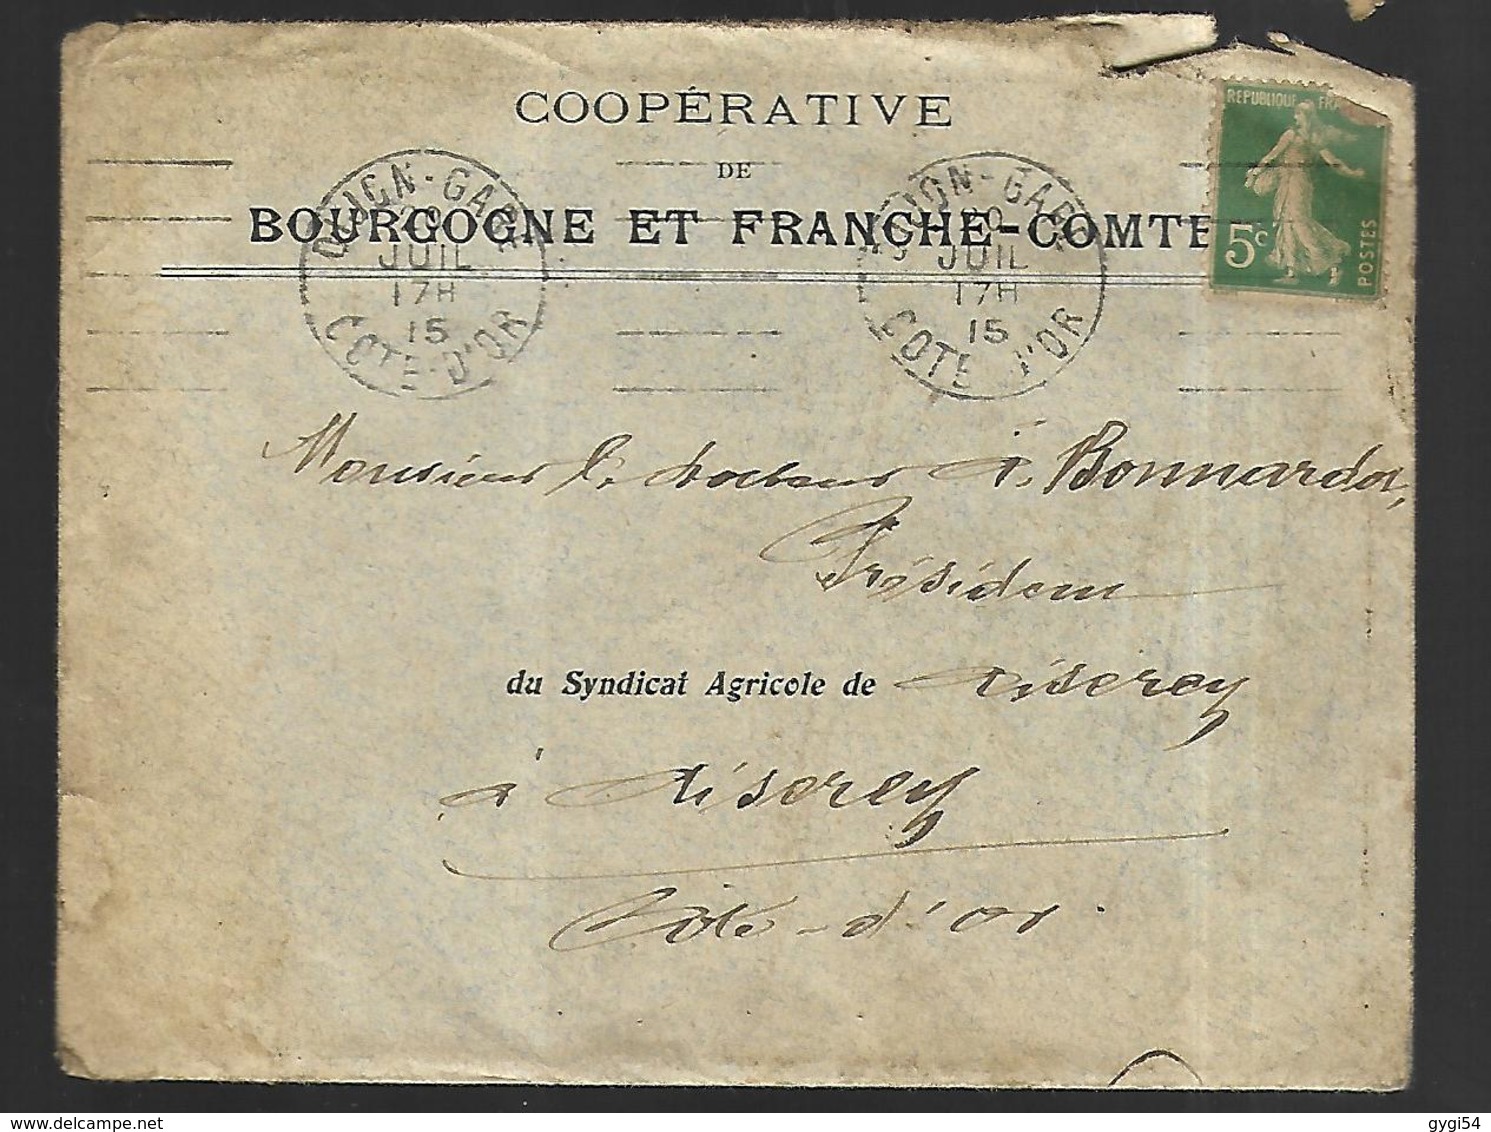 COOPÉRATIVE
DE
BOURGOGNE ET FRANCHE-COMTE
REPUBLIQUE FRA
5c
POSTES
DIJON-GARE
20
JUIL
17H
15
COTE-D'OR
DIJON-GARE
20
JUIL
17H
15
COTE D'OR
Monsieur le docteur à Bonnardot,
Président
du Syndicat Agricole de Aiserey
à Aiserey
Côte-d'or.
gygi54